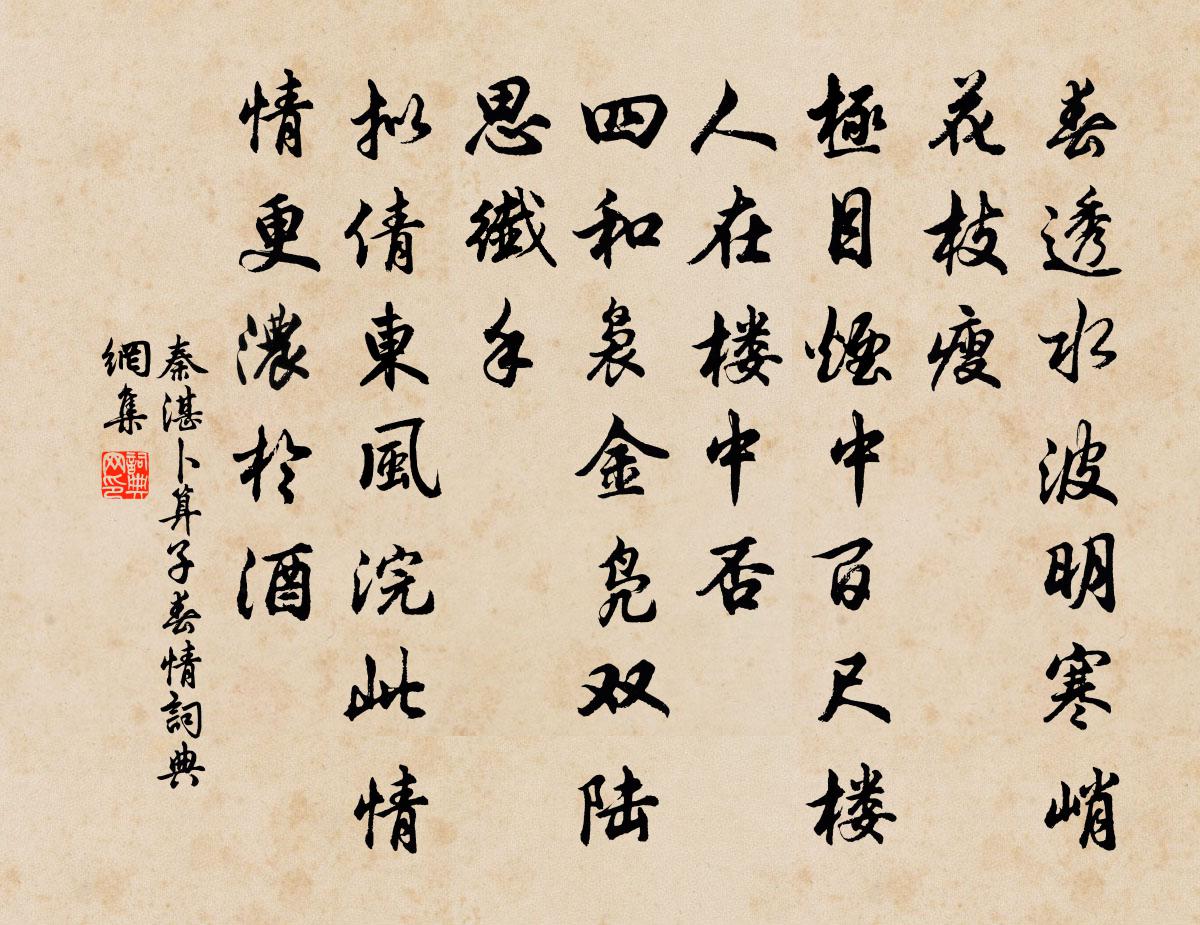 春透水波明寒峭
花枝瘦
極目煙中百尺楼
人在楼中否
四和袅金凫双陆
思纖手
拟倩東風浣此情
情更濃於酒
秦湛卜算子春情詞典
網集
詞典
网印